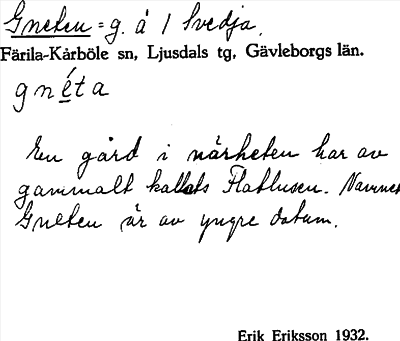 Gneten = g. å 1 Svedja.
Färila-Kårböle sn, Ljusdals tg, Gävleborgs län.
gnéta
En gård i närheten har av
gammalt kallats Flatlusen. Namnet
Gneten är av yngre datum.
Erik Eriksson 1932.